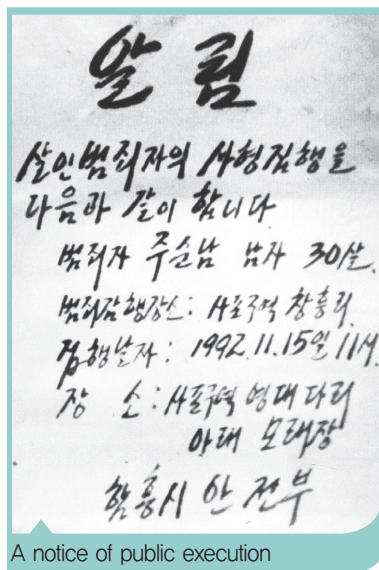 알 림
살인범죄자의 사형집행을
다음과 같이 합니다
범죄자 주순남 남자 30살.
범죄감행장소: 사포구역 창흥리
집행날자: 1992.11.15일 11시.
장 소: 사포구역 영대다리
아래 모래장
함흥시 안전부
A notice of public execution